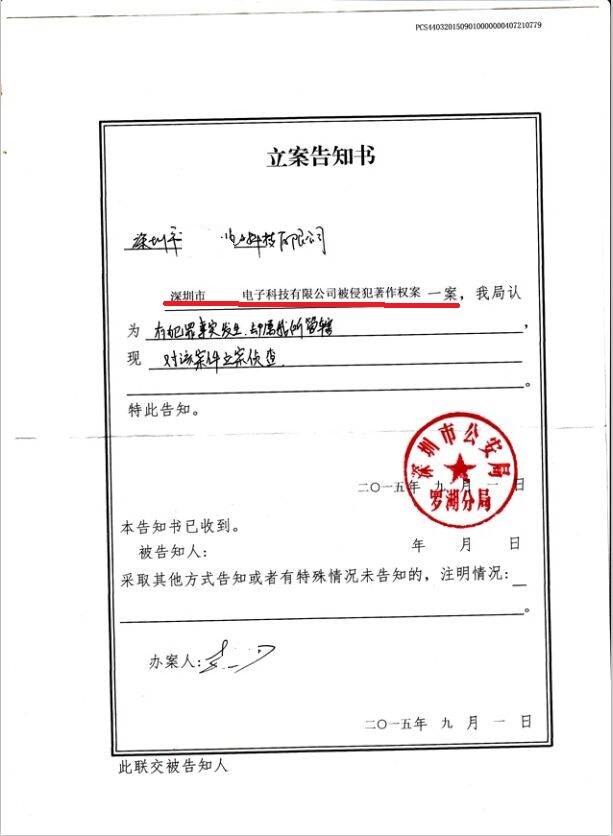 PCS4403201509010000000407210779
立案告知书
深圳市 电子科技有限公司
深圳市 电子科技有限公司被侵犯著作权案 一案，我局认
为 有犯罪事实发生、却属我所管辖 ，
现 对该案件立案侦查
。
特此告知。
深圳市公安局
罗湖分局
二〇一五年 九 月 一 日
本告知书已收到。
被告知人： 年 月 日
采取其他方式告知或者有特殊情况未告知的，注明情况：
。
办案人：
二〇一五年 九 月 一 日
此联交被告知人